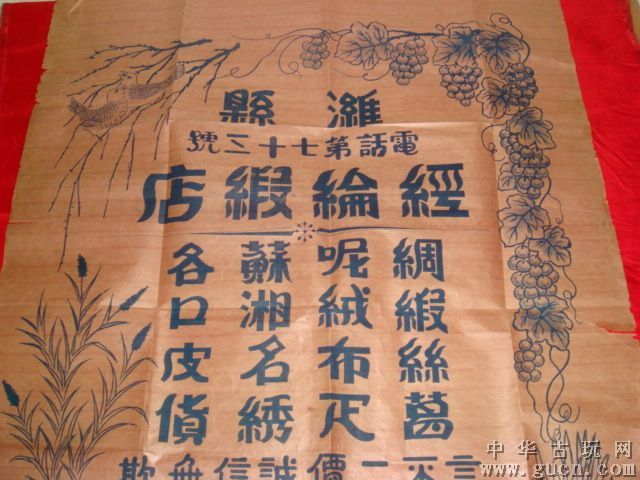 濰縣
電話第七十三號
經綸緞店
綢緞絲葛
呢絨布疋
蘇湘名綉
各口皮貨
言不二價誠信無欺
中华古玩网
www.gucn.com